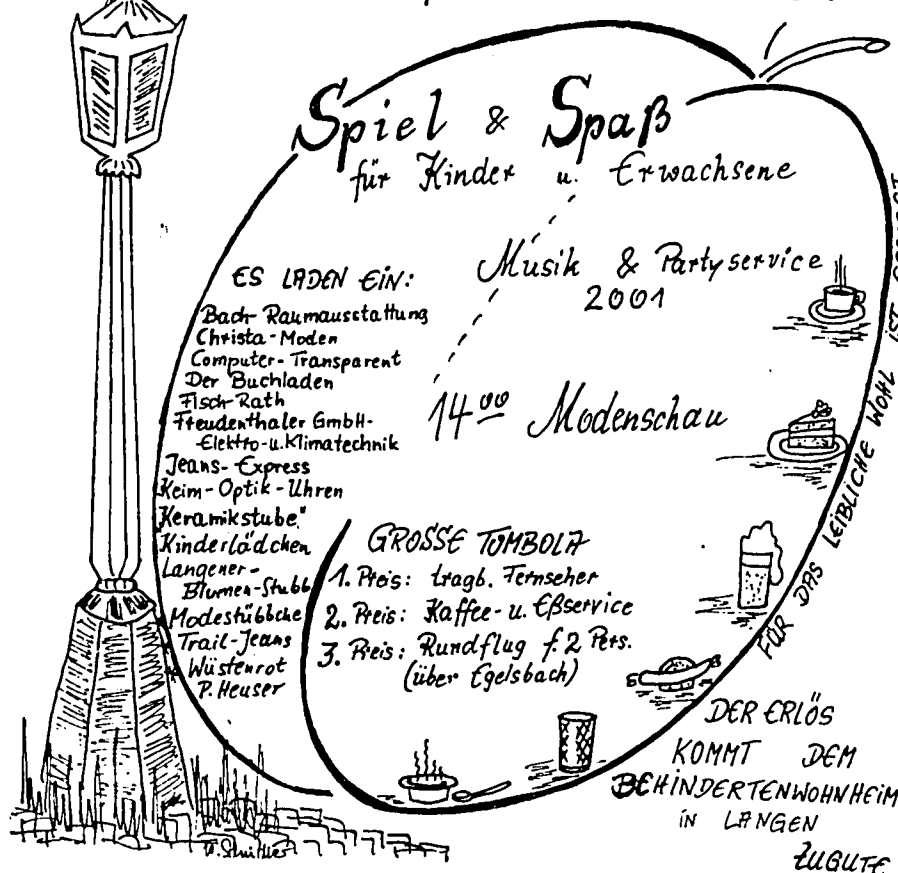 Spiel & Spaß
für Kinder u. Erwachsene
Musik & Partyservice
2001
14⁰⁰ Modenschau
ES LADEN EIN:
Bach Raumausstattung
Christa-Moden
Computer-Transparent
Der Buchladen
Fisch-Rath
Freudenthaler GmbH-
Elektro-u.Klimatechnik
Jeans-Express
Keim-Optik-Uhren
"Keramikstube"
Kinderlädchen
Langener-
Blumen-Stubb
Modestübbche
Trail-Jeans
Wüstenrot
P. Heuser
GROSSE TOMBOLA
1. Preis: tragb. Fernseher
2. Preis: Kaffee-u. Eßservice
3. Preis: Rundflug f. 2 Pers.
(über Egelsbach)
FÜR DAS LEIBLICHE WOHL IST GESORGT
DER ERLÖS
KOMMT DEM
BEHINDERTENWOHNHEIM
in LANGEN
ZUGUTE